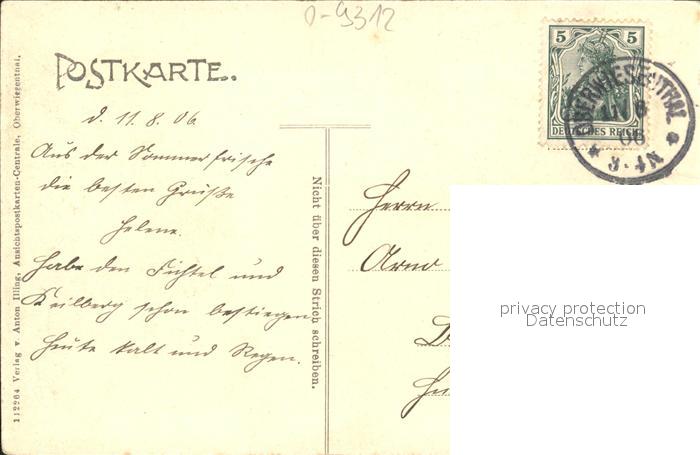 0-9312
POSTKARTE.
d. 11. 8. 06
Aus der Sommerfrische
die besten Grüße
Helene.
Habe den Fichtel und
Keilberg schon bestiegen
Heute kalt und Regen.
112964 Verlag v. Anton Illing, Ansichtspostkarten-Centrale, Oberwiesenthal.
Nicht über diesen Strich schreiben.
5 5
DEUTSCHES REICH
OBERWIESENTHAL
11 8
06
Herrn
Arno
privacy protection
Datenschutz